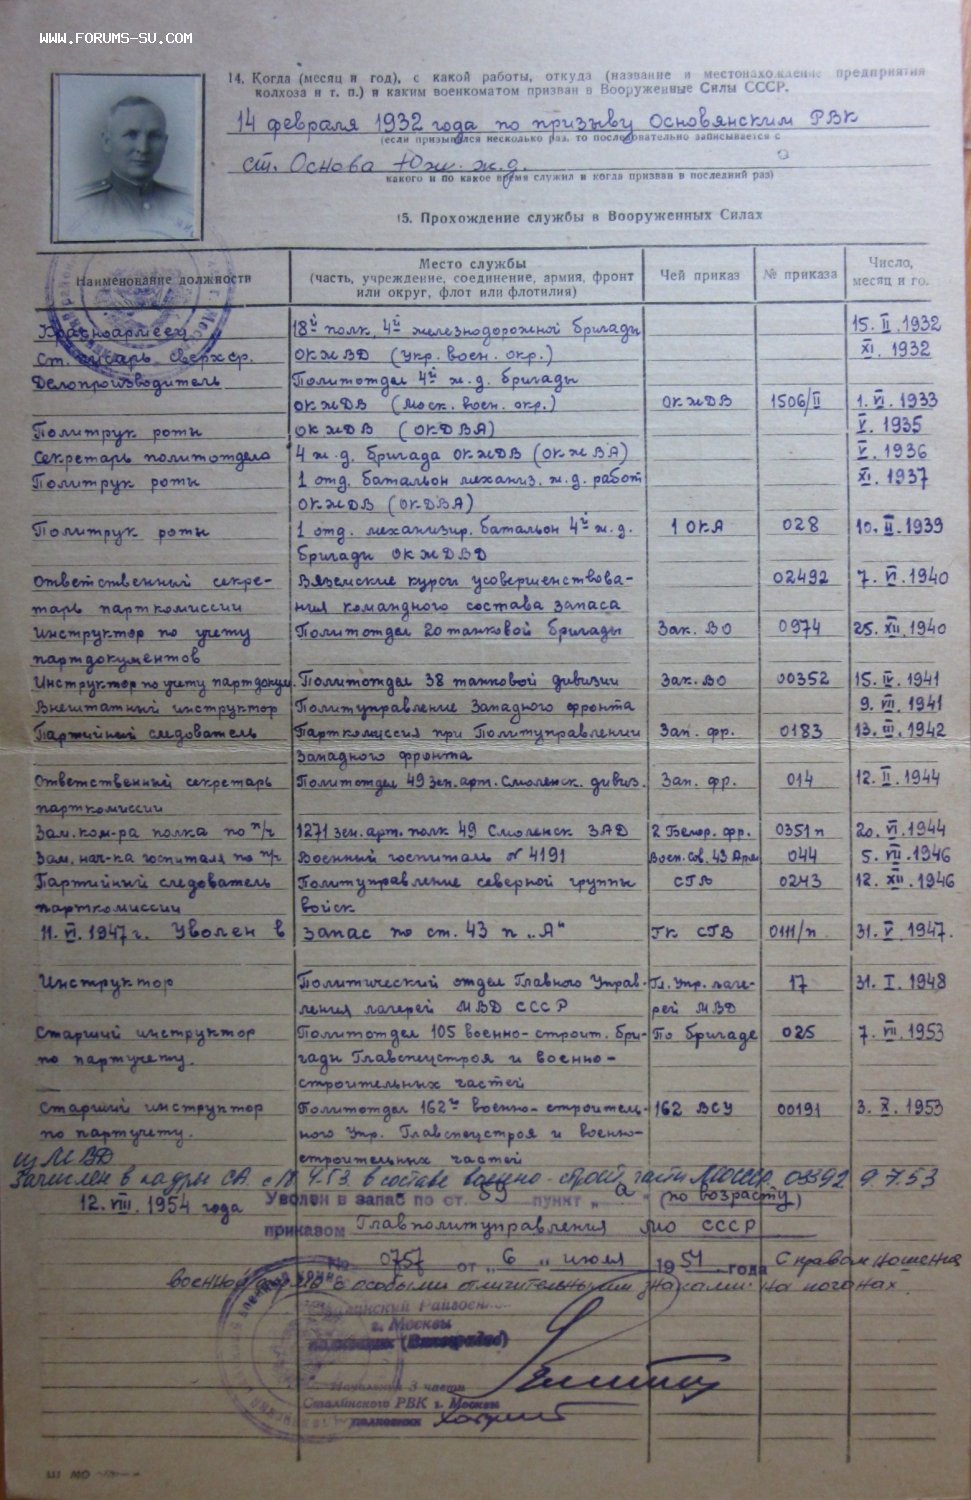 WWW.FORUMS-SU.COM
14. Когда (месяц и год), с какой работы, откуда (название и местонахождение предприятия
колхоза и т. п.) и каким военкоматом призван в Вооруженные Силы СССР.
14 февраля 1932 года по призыву Основянским РВК
(если призывался несколько раз, то последовательно записывается с
ст. Основа Юж. ж.д.
какого и по какое время служил и когда призван в последний раз)
15. Прохождение службы в Вооруженных Силах
Наименование должности Место службы (часть, учреждение, соединение, армия, фронт или округ, флот или флотилия) Чей приказ № приказа Число, месяц и го.
Красноармеец 18й полк, 4й железнодорожной бригады 15. II. 1932
Ст. писарь сверхср. ОКЖВД (Укр. воен. окр.) XI. 1932
Делопроизводитель Политотдел 4й ж.д. бригады
ОКЖДВ (Моск. воен. окр.) ОКЖДВ 1506/II 1. VI. 1933
Политрук роты ОКЖДВ (ОКДВА) V. 1935
Секретарь политотдела 4 ж.д. бригада ОКЖДВ (ОКЖВА) V. 1936
Политрук роты 1 отд. батальон механиз. ж.д. работ XI. 1937
ОКЖДВ (ОКДВА)
Политрук роты 1 отд. механизир. батальон 4й ж.д. 1 ОКА 028 10. II. 1939
бригады ОКЖДВД
Ответственный секре- Вяземские курсы усовершенствова- 02492 7. VI. 1940
тарь парткомиссии ния командного состава запаса
Инструктор по учету Политотдел 20 танковой бригады Зак. ВО 0974 25. XII. 1940
партдокументов
Инструктор по учету партдокум. Политотдел 38 танковой дивизии Зак. ВО 00352 15. IV. 1941
Внештатный инструктор Политуправление Западного фронта 9. VII. 1941
Партийный следователь Парткомиссия при Политуправлении Зап. фр. 0183 13. III. 1942
Западного фронта
Ответственный секретарь Политотдел 49 зен. арт. Смоленск. дивиз. Зап. фр. 014 12. II. 1944
парткомиссии
Зам. ком-ра полка по п/ч 1271 зен. арт. полк 49 Смоленск ЗАД 2 Белор. фр. 0351п 20. VI. 1944
Зам. нач-ка госпиталя по п/ч Военный госпиталь № 4191 Воен. Сов. 43 Арм 044 5. VII. 1946
Партийный следователь Политуправление северной группы СГВ 0243 12. XII. 1946
парткомиссии войск
11. VI. 1947 г. Уволен в запас по ст. 43 п „А“ ГК СГВ 0111/п 31. V. 1947.
Инструктор Политический отдел Главного Управ- Гл. Упр. лаге- 17 31. I. 1948
ления лагерей МВД СССР рей МВД
Старший инструктор Политотдел 105 военно-строит. бри- По бригаде 025 7. VII. 1953
по партучету. гады Главспецстроя и военно-
строительных частей
Старший инструктор Политотдел 162го военно-строитель- 162 ВСУ 00191 3. X. 1953
по партучету. ного Упр. Главспецстроя и военно-
строительных частей
из МВД
Зачислен в кадры СА. с 18. 4.53. в составе военно-строит. части 9 7.53
12. VIII. 1954 года Уволен в запас по ст. 59 пункт „а“ (по возрасту)
приказом Главполитуправления МО СССР
No 0757 от „6“ июля 1954 года С правом ношения
военной формы с особыми отличительными знаками на погонах.
г. Москвы
Начальник 3 части
Сталинского РВК г. Москвы
полковник